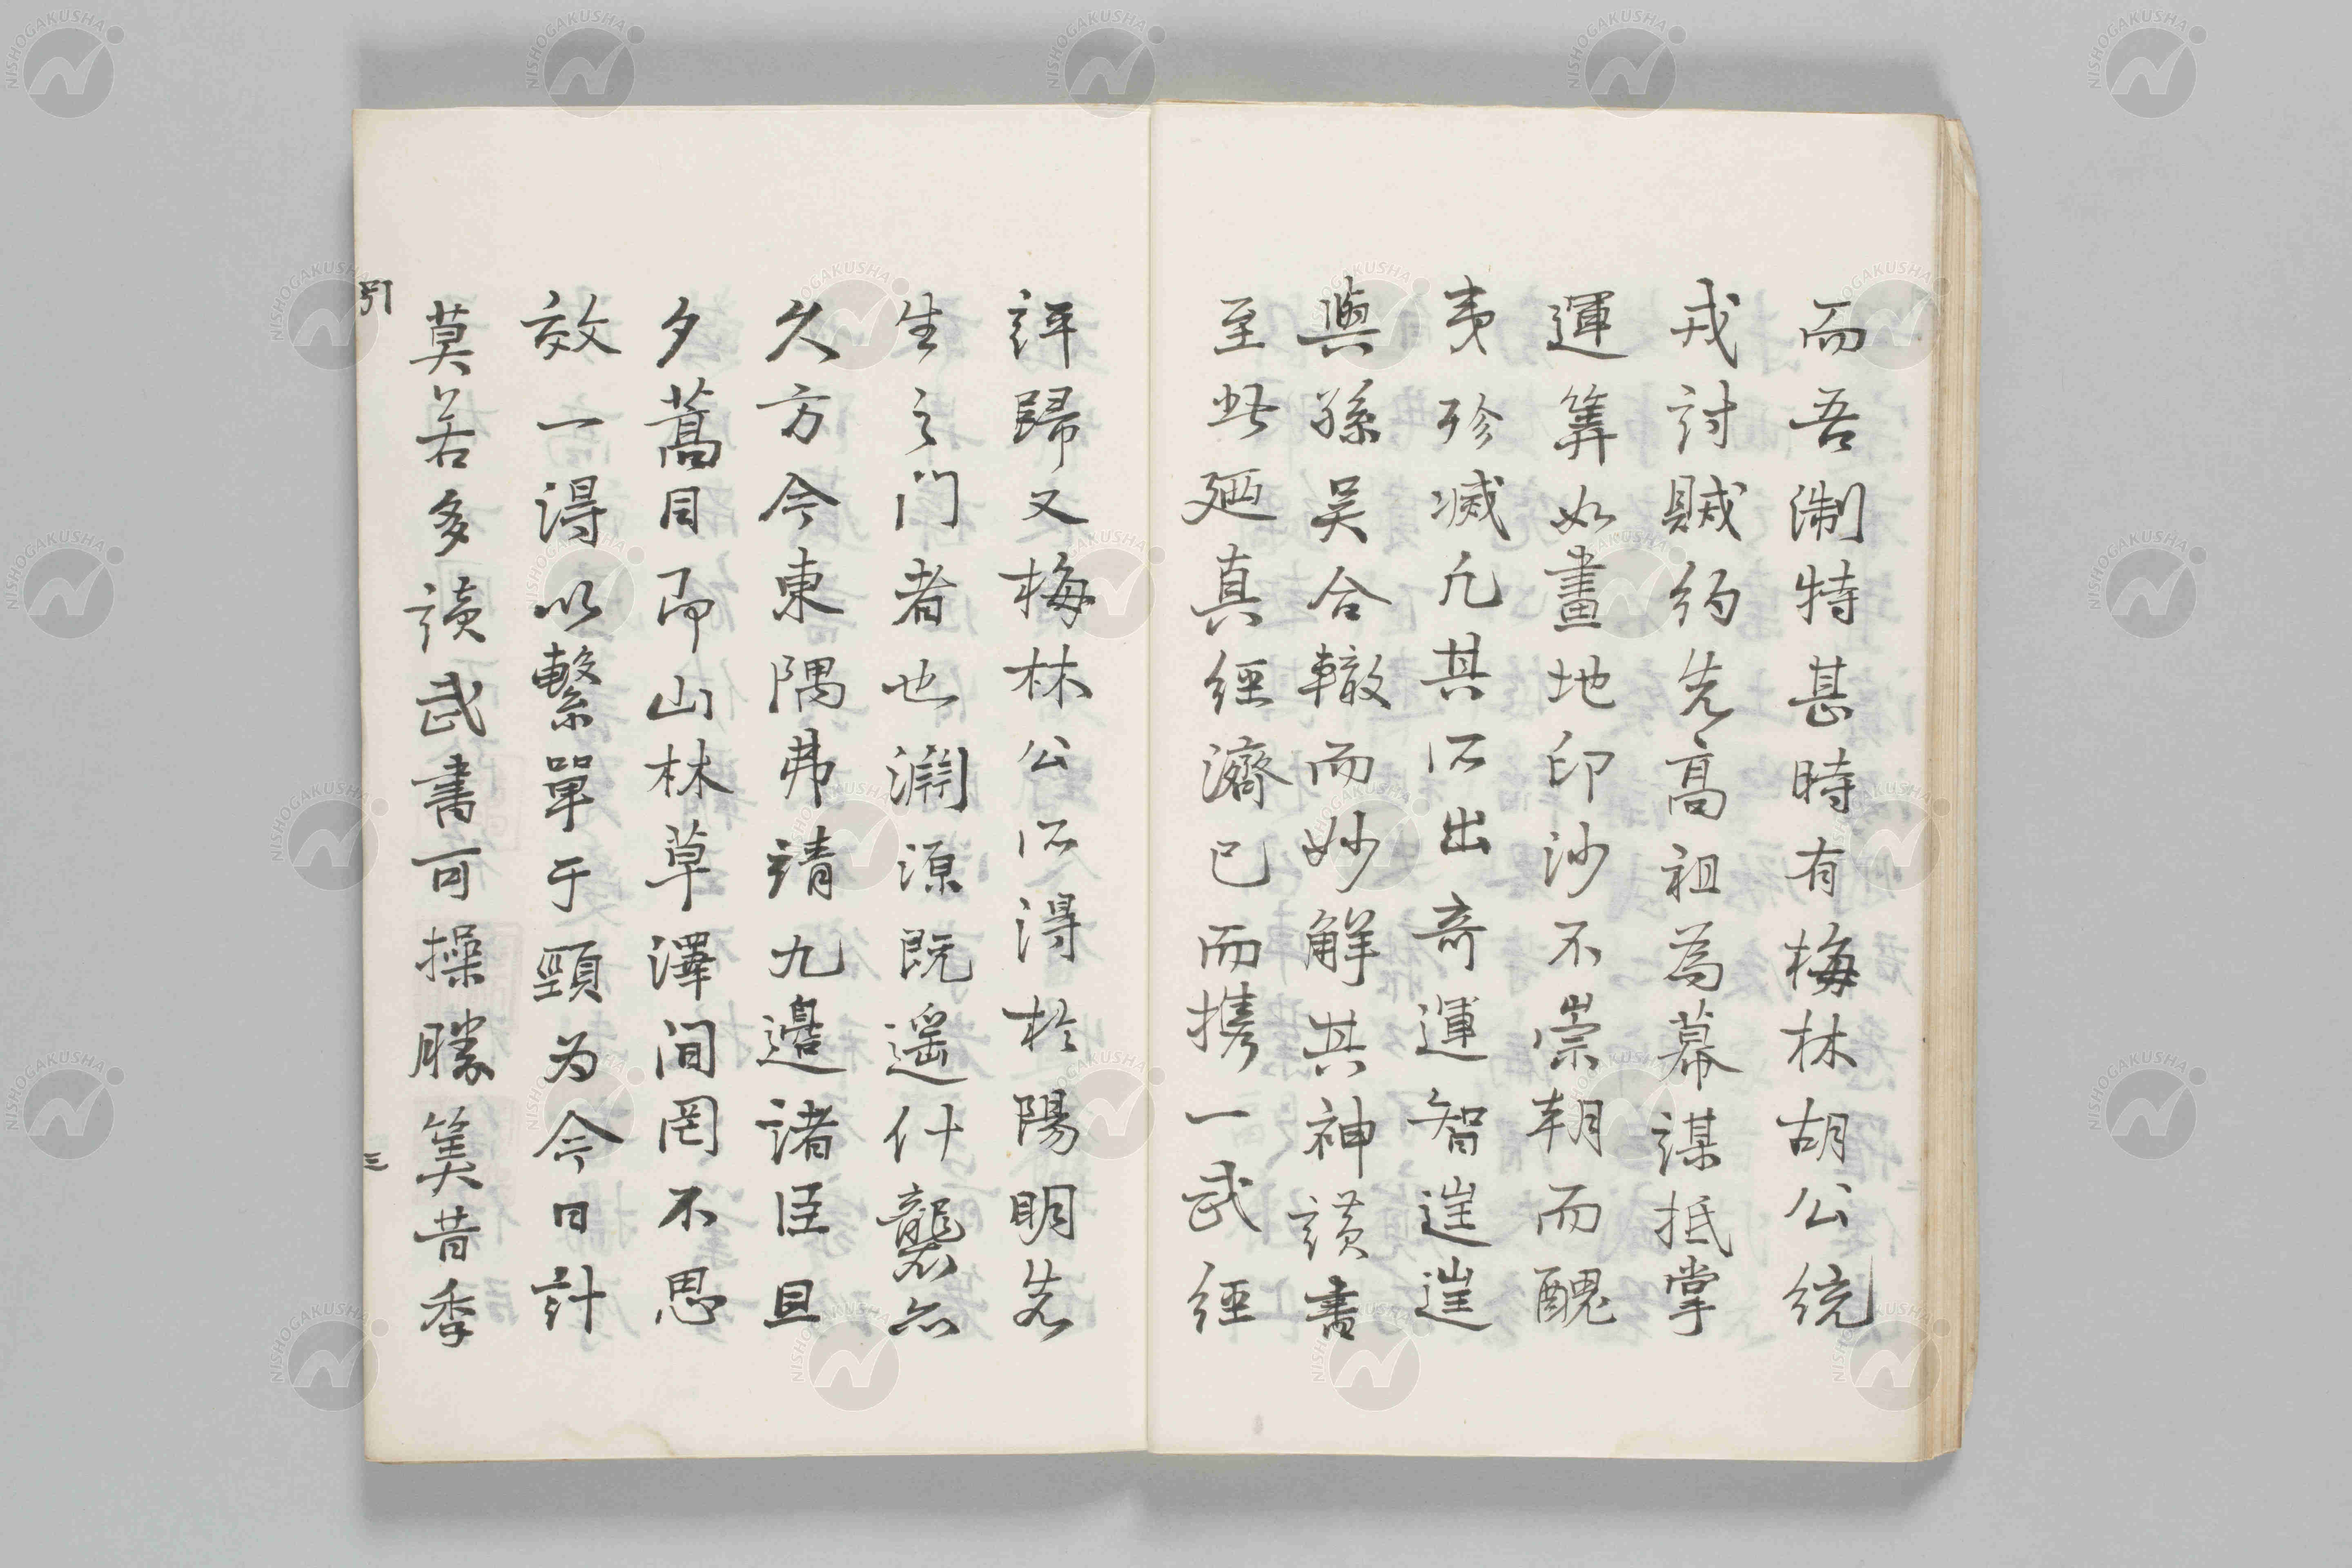 而吾淛特甚時有梅林胡公統
戎討賊約先高祖為幕謀抵掌
運筭如畫地印沙不崇朝而醜
夷殄滅凢其所出奇運智𨓏𨓏
與孫吴合轍而妙解其神讀書
至此廼真經濟已而携一武經
評歸又梅林公所得於陽明先
生之门者也淵源既遥什襲亦
久方今東隅弗靖九邉諸臣且
夕蒿目即山林草澤间罔不思
效一得以繫單于頸为今日計
莫若多讀武書可操勝筭昔季
引
三
NISHOGAKUSHA